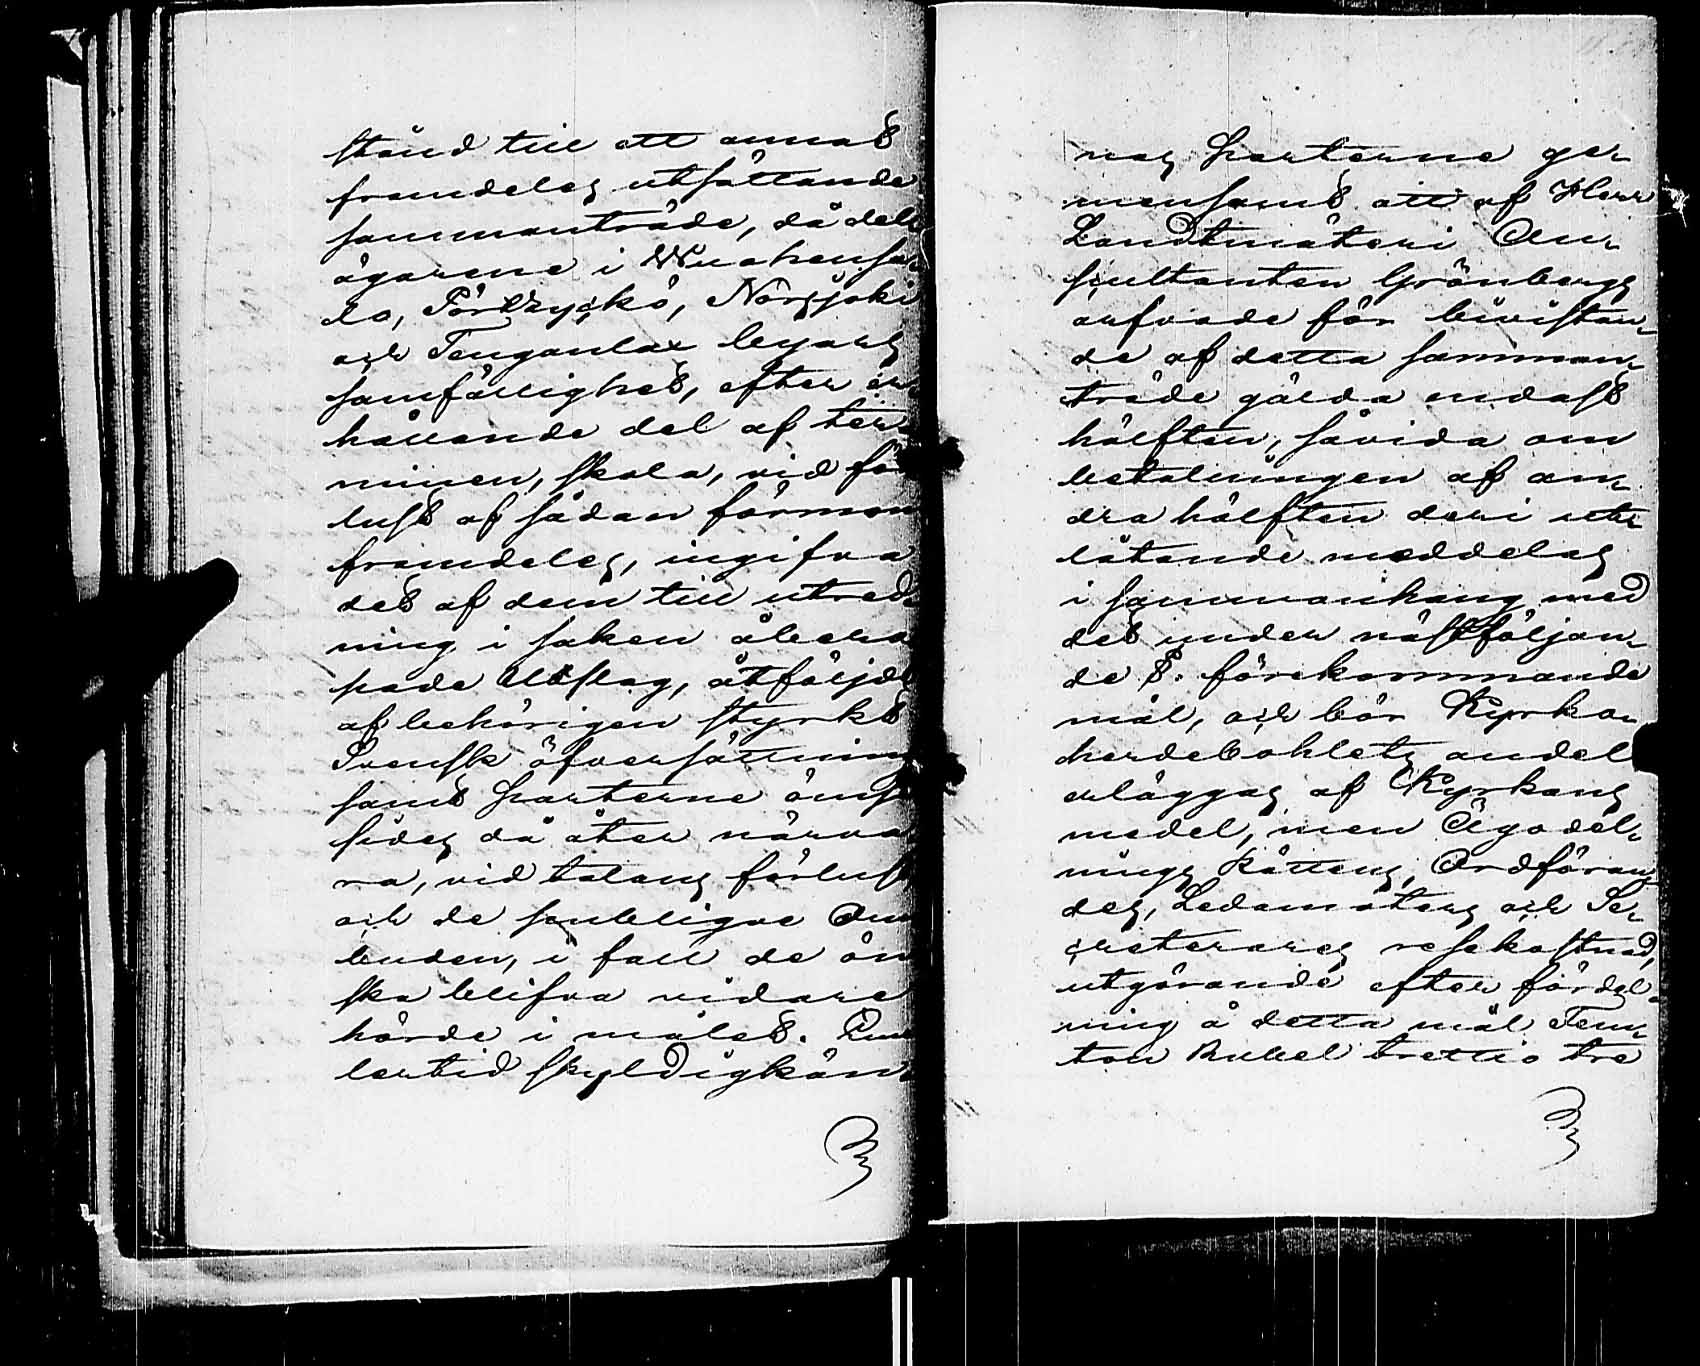 stånd till ett annat
framdeles utsättande
sammanträde, då del-
ägarene i Wuohensa-
lo, Pörtzyckö, Norsjoki
och Tenganlax byars
samfällighet, efter er-
hållande del af ter-
minen, skola, vid för-
lust af sådan förmon
framdeles, ingifva
det af dem till utred-
ning i saken åbero-
pade Utslag, åtföljdt
af behörigen styrkt
Svensk öfversättning
samt parterne ömse
sides då åter närva-
ra, vid talans förlust
och de publique Om-
buden, i fall de ön-
ska blifva vidare
hörde i målet. Emel-
lertid skyldigkän-
nas parterne ge-
mensamt att af Herr
Landtmäteri Au-
scultanten Grönbergs
arfvode för bevistan-
de af detta samman-
träde gälda endast
hälften, såvida om
betalningen af an-
dra hälften deri utr
låtande meddelas
i sammanhang med
det under nästföljan-
de §. förekommande
mål, och bör Kyrko-
herdebohlets andel
erläggas af Kyrkans
medel, men Ägodel-
nings Rättens, Ordföran-
des, Ledamöters och Se-
creterares resekostnad,
utgörande efter fördel-
ning å detta mål Fem-
ton Rubel trettio tre